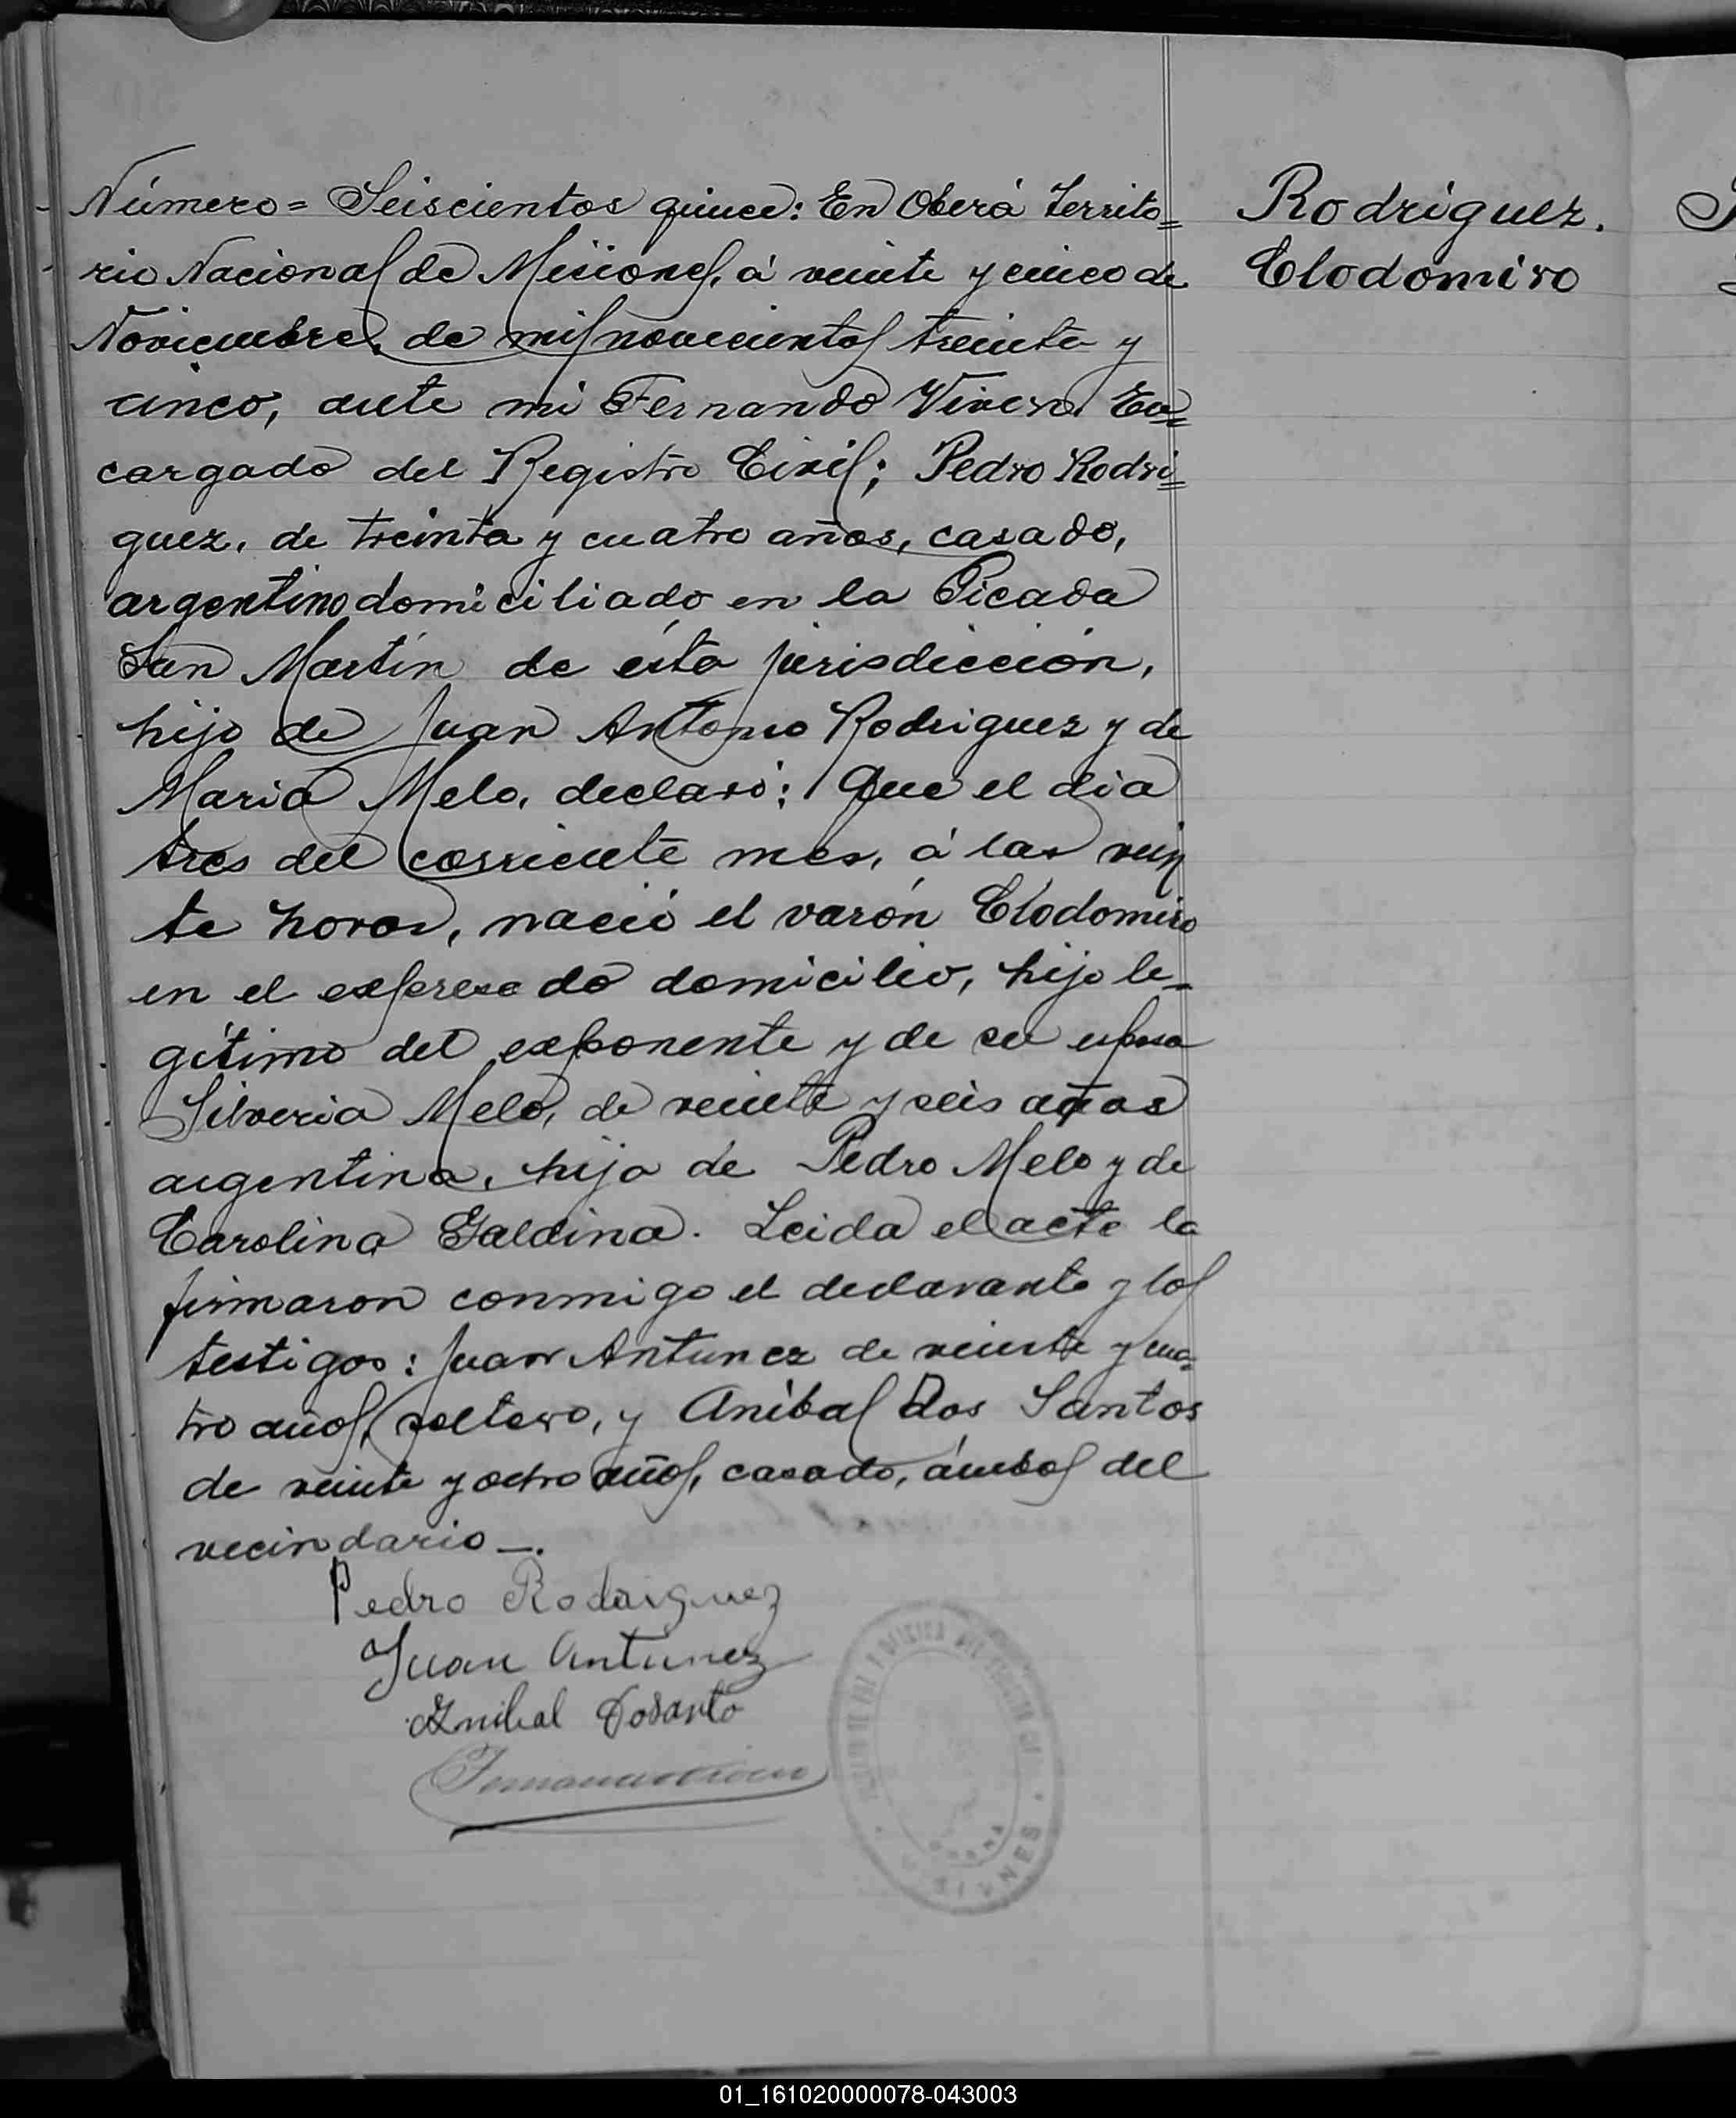 Número= Seiscientos quince: En Oberá Territo=
rio Nacional de Misiones, á veinte y cinco de
Noviembre, de mil novecientos treinta y
cinco, ante mi Fernando Vivero En=
cargado del Registro Civil; Pedro Rodri=
guez, de treinta y cuatro años, casado,
argentino domiciliado en la Picada
San Martín de ésta jurisdicción,
hijo de Juan Antonio Rodriguez y de
Maria Melo, declaró: Que el dia
tres del corriente mes, á las vein
te horas, nació el varón Clodomiro
en el expresado domicilio, hijo le-
gítimo del exponente y de su esposa
Silveria Melo, de veinte y seis años
argentina, hija de Pedro Melo y de
Carolina Galdina. Leida el acta la
firmaron conmigo el declarante y los
testigos: Juan Antunez de veinte y cua=
tro años, soltero, y Anibal Dos Santos
de veinte y ocho años, casado, ámbos del
vecindario_.
Pedro Rodriguez
Juan Antunez
Anibal Dosanto
Rodríguez.
Clodomiro
MISIONES
01_161020000078-043003